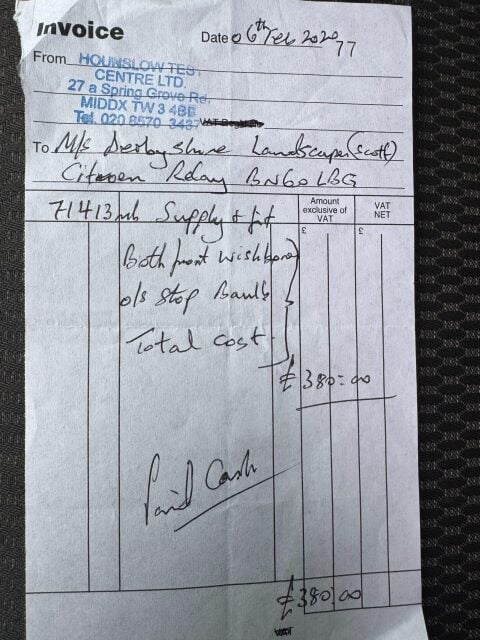 Invoice
Date 06th Feb 2020
77
From HOUNSLOW TEST
CENTRE LTD,
27 a Spring Grove Rd,
MIDDX TW3 4BE
Tel. 020 8570 3437
To M/s Derbyshire Landscape (Scott)
Citroen Relay BN60 LBG
Amount exclusive of VAT
VAT NET
£ £
71413 mls Supply & fit
Both front wishbone
o/s Stop
Total cost
£380=00
Paid Cash
£380=00